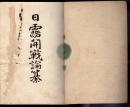 日露開戦論纂